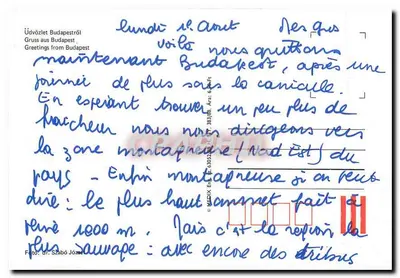 Üdvözlet Budapestről
Gruss aus Budapest
Greetings from Budapest
lundi 1er Aout
voilà nous quittons
maintenant Budapest, après une
journée de plus sous la canicule.
En espérant trouver un peu plus de
fraîcheur nous nous dirigeons vers
la zone montagneuse (nord Est) du
pays - Enfin montagneuse si on peut
dire : le plus haut sommet fait à
peine 1000 m. Mais c'est la région la
plus sauvage : avec encore des tribus
Foto: dr. Szabó József